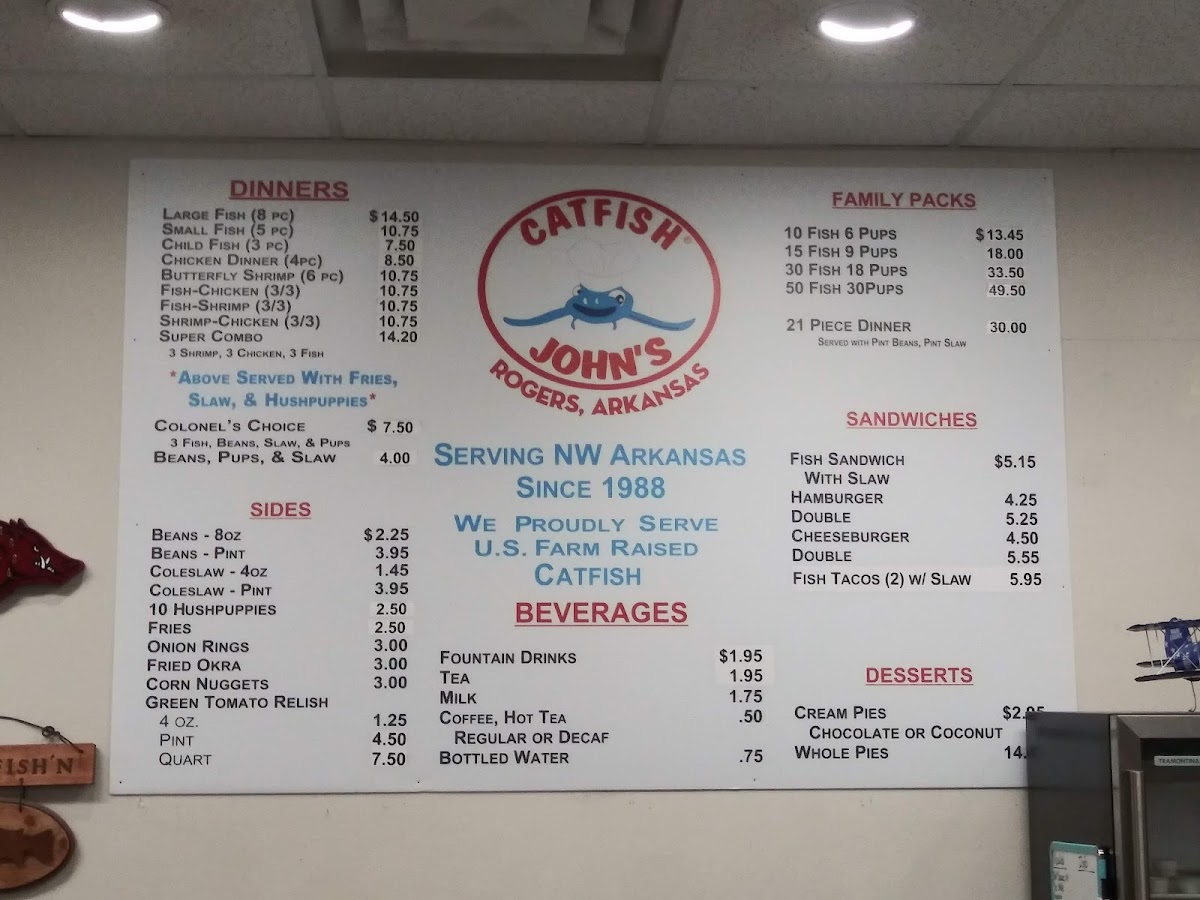 DINNERS
LARGE FISH (8 PC) $14.50
SMALL FISH (5 PC) 10.75
CHILD FISH (3 PC) 7.50
CHICKEN DINNER (4PC) 8.50
BUTTERFLY SHRIMP (6 PC) 10.75
FISH-CHICKEN (3/3) 10.75
FISH-SHRIMP (3/3) 10.75
SHRIMP-CHICKEN (3/3) 10.75
SUPER COMBO 14.20
3 SHRIMP, 3 CHICKEN, 3 FISH
*ABOVE SERVED WITH FRIES,
SLAW, & HUSHPUPPIES*
COLONEL'S CHOICE $ 7.50
3 FISH, BEANS, SLAW, & PUPS
BEANS, PUPS, & SLAW 4.00
SIDES
BEANS - 8OZ $2.25
BEANS - PINT 3.95
COLESLAW - 4OZ 1.45
COLESLAW - PINT 3.95
10 HUSHPUPPIES 2.50
FRIES 2.50
ONION RINGS 3.00
FRIED OKRA 3.00
CORN NUGGETS 3.00
GREEN TOMATO RELISH
4 OZ. 1.25
PINT 4.50
QUART 7.50
CATFISH®
JOHN'S
ROGERS, ARKANSAS
SERVING NW ARKANSAS
SINCE 1988
WE PROUDLY SERVE
U.S. FARM RAISED
CATFISH
BEVERAGES
FOUNTAIN DRINKS $1.95
TEA 1.95
MILK 1.75
COFFEE, HOT TEA .50
REGULAR OR DECAF
BOTTLED WATER .75
FAMILY PACKS
10 FISH 6 PUPS $13.45
15 FISH 9 PUPS 18.00
30 FISH 18 PUPS 33.50
50 FISH 30PUPS 49.50
21 PIECE DINNER 30.00
SERVED WITH PINT BEANS, PINT SLAW
SANDWICHES
FISH SANDWICH $5.15
WITH SLAW
HAMBURGER 4.25
DOUBLE 5.25
CHEESEBURGER 4.50
DOUBLE 5.55
FISH TACOS (2) W/ SLAW 5.95
DESSERTS
CREAM PIES
CHOCOLATE OR COCONUT
WHOLE PIES 14.
FISH'N
TRAMONTINA